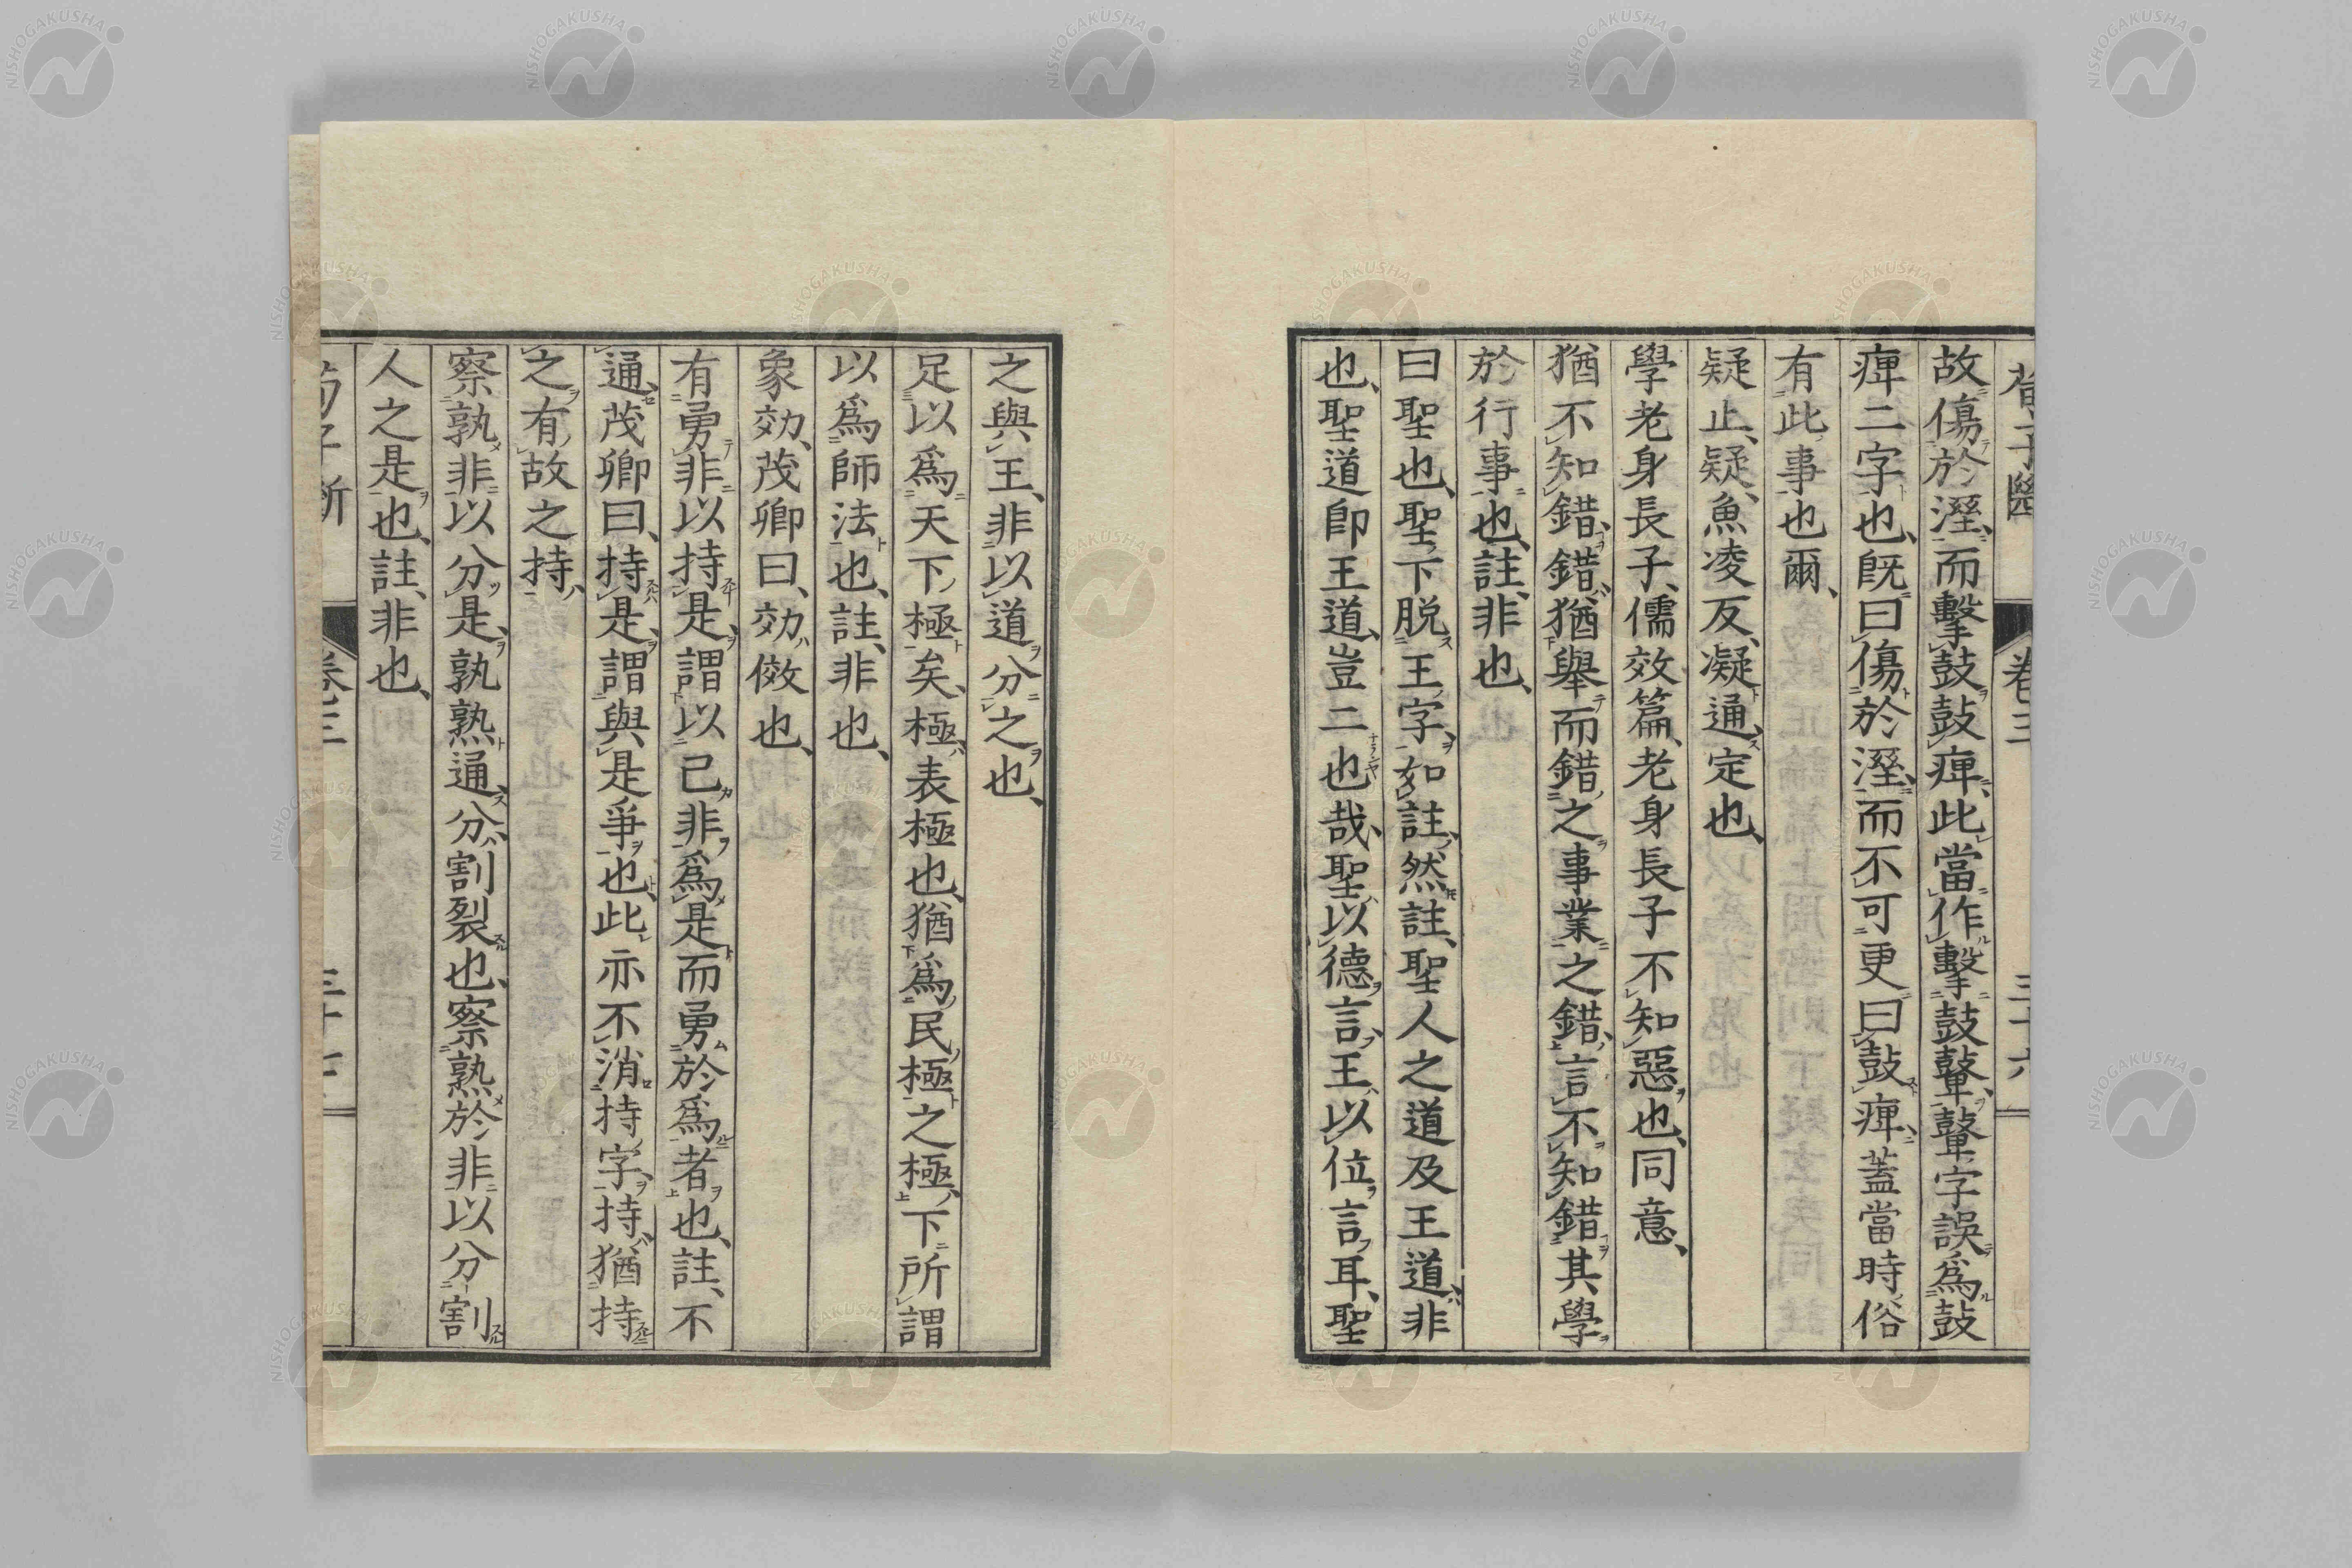 故傷於溼、而擊鼓鼓痺、此當作擊鼓鼙、鼙字誤爲鼓
痺二字也、既曰傷於溼、而不可更曰鼓痺、蓋當時俗
有此事也爾、
疑止、疑、魚凌反、凝通、定也、
學老身長子、儒效篇、老身長子不知惡也、同意、
猶不知錯、錯、猶舉而錯之事業之錯、言不知錯其學
於行事也、註、非也、
曰聖也、聖下脱王字、如註、然註、聖人之道及王道、非
也、聖道卽王道、豈二也哉、聖以德言、王以位言耳、聖
之與王、非以道分之也、
足以爲天下極矣、極、表極也、猶爲民極之極、下所謂
以爲師法也、註、非也、
象効、茂卿曰、効、傚也、
有勇非以持是、謂以己非爲是而勇於爲者也、註、不
通、茂卿曰、持是、謂與是爭也、此亦不消持字、持、猶持
之有故之持、
察孰非以分是、孰熟通、分、割裂也、察熟於非以分割
人之是也、註、非也、
卷三
NISHOGAKUSHA